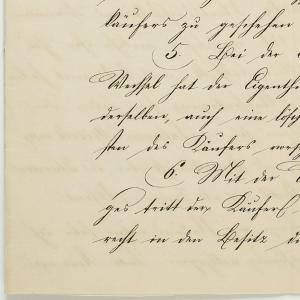 Käufers zu geschehen
5. Bei der
Wechsel hat der Eigenth
derselben, auch eine lösch
sten des Käufers vor
6. Mit der
ges tritt der Käufer
recht in den Besitz d